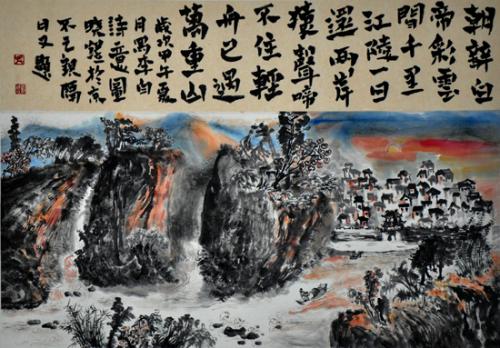 朝辭白
帝彩雲
間千里
江陵一日
還兩岸
猿聲啼
不住輕
舟已過
萬重山
歲次甲午夏
月寫李白
詩意圖
於京
日又題